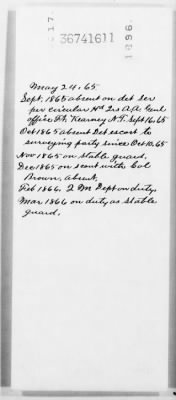 17
36741611
1896.
May 24.65
Sept. 1865 absent on det ser
per circular Hd Qrs A.A. Genl
office Ft. Kearney N.T. Sept 16.65
Oct 1865 absent Det escort to
surveying party since Oct 10.65
Nov 1865 on stable guard.
Dec 1865 on scout with Col
Brown, absent.
Feb 1866. Q M Dept on duty
Mar 1866 on duty as stable
guard.